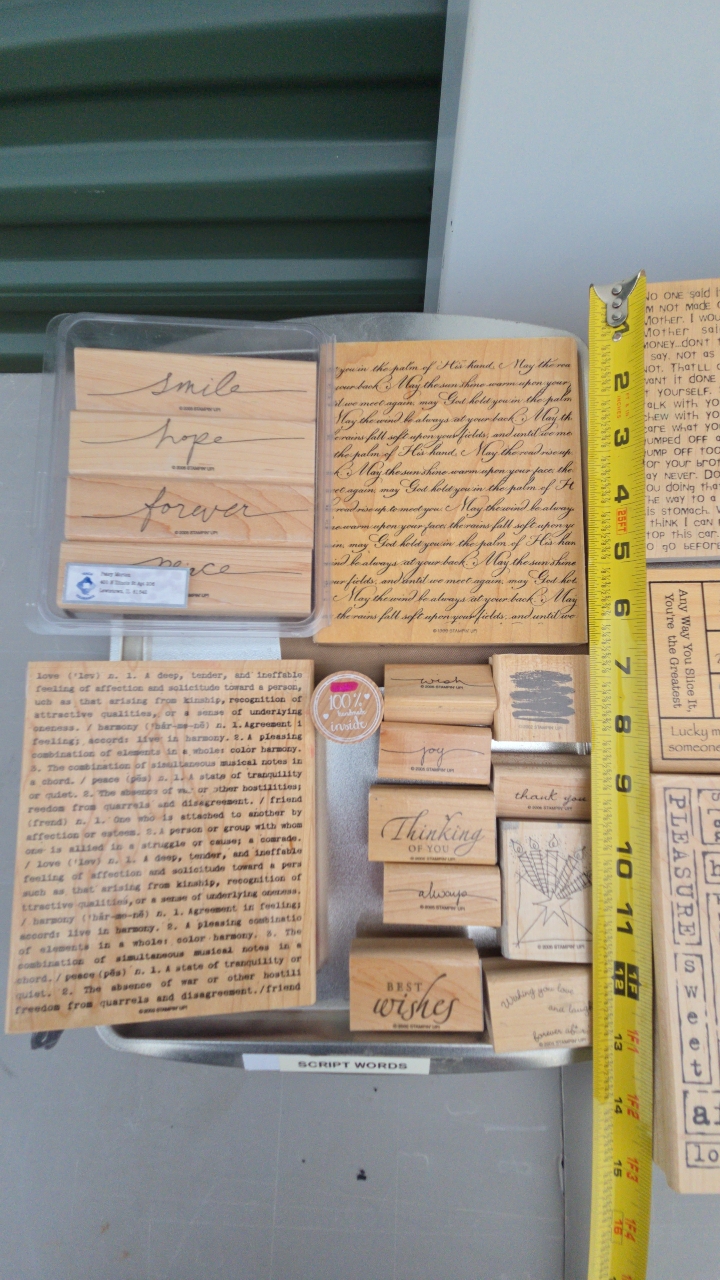 smile
hope
forever
© 2005 STAMPIN' UP!
you in the palm of His hand. May the roa
your back. May the sun shine warm upon your
til we meet again, may God hold you in the palm
May the wind be always at your back. May th
e rains fall soft upon your fields, and until we me
the palm of His hand. May the road rise up
k. May the sun shine warm upon your face, the
et again, may God hold you in the palm of H
road rise up to meet you. May the wind be always
ne warm upon your face, the rains fall soft upon yo
in, may God hold you in the palm of His han
ind be always at your back. May the sun shine
ur fields, and until we meet again, may God hol
May the wind be always at your back. May
the rains fall soft upon your fields, and until we
love ('lev) n. 1. A deep, tender, and ineffable
feeling of affection and solicitude toward a person,
uch as that arising from kinship, recognition of
attractive qualities, or a sense of underlying
oneness. / harmony ('här-me-nē) n. 1. Agreement i
feeling; accord: live in harmony. 2. A pleasing
combination of elements in a whole: color harmony.
3. The combination of simultaneous musical notes in
a chord. / peace (pēs) n. 1. A state of tranquility
or quiet. 2. The absence of war or other hostilities;
reedom from quarrels and disagreement. / friend
(frend) n. 1. One who is attached to another by
affection or esteem. 2. A person or group with whom
one is allied in a struggle or cause; a comrade.
/ love ('lev) n. 1. A deep, tender, and ineffable
feeling of affection and solicitude toward a pers
such as that arising from kinship, recognition of
ttractive qualities, or a sense of underlying oneness.
/ harmony ('här-me-nē) n. 1. Agreement in feeling;
accord: live in harmony. 2. A pleasing combinatio
of elements in a whole: color harmony. 3. The
combination of simultaneous musical notes in a
chord. / peace (pēs) n. 1. A state of tranquility or
quiet. 2. The absence of war or other hostili
freedom from quarrels and disagreement. /friend
100%
handmade
inside
wish
joy
Thinking
OF YOU
always
BEST
wishes
thank you
Wishing you love
and laugh
forever after
SCRIPT WORDS
2
3
4
5
6
7
8
9
10
11
12 1F
13 1F1
14 1F2
15 1F3
16 1F4
NO ONE said i
Mother. I wou
Mother said
MONEY...DON'T
say. NOT as
NOT. THAT'LL
WANT IT DONE
YOURSELF.
ALK WITH YO
CHEW WITH YO
CARE WHAT YO
JUMPED OFF
JUMP OFF TOO
OR YOUR BROT
AY NEVER. DO
YOU DOING THA
THE WAY TO A
IS STOMACH.
THINK I CAN
TOP THIS CAR.
GO BEFOR
Any Way You Slice It,
You're the Greatest
Lucky m
someone
PLEASURE
sweet